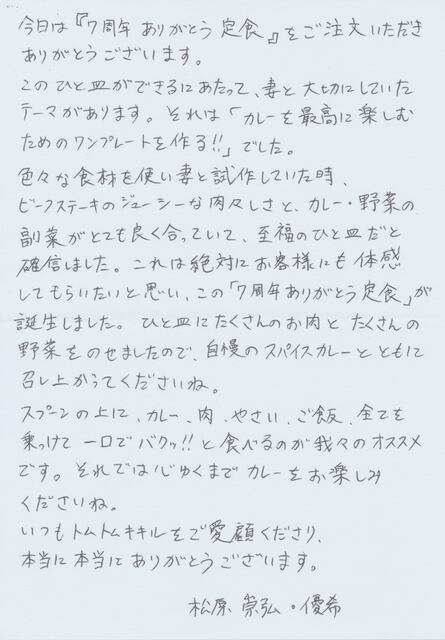 今日は『7周年 ありがとう 定食』をご注文いただき
ありがとうございます。
このひと皿ができるにあたって、妻と大切にしていた
テーマがあります。それは「カレーを最高に楽しむ
ためのワンプレートを作る!!」でした。
色々な食材を使い妻と試作していた時、
ビーフステーキのジューシーな肉々しさと、カレー・野菜の
副菜がとても良く合っていて、至福のひと皿だと
確信しました。これは絶対にお客様にも体感
してもらいたいと思い、この「7周年ありがとう定食」が
誕生しました。ひと皿にたくさんのお肉とたくさんの
野菜をのせましたので、自慢のスパイスカレーとともに
召し上がってくださいね。
スプーンの上に、カレー、肉、やさい、ご飯、全てを
乗っけて一口でバクッ!!と食べるのが我々のオススメ
です。それでは心ゆくまでカレーをお楽しみ
くださいね。
いつもトムトムキキルをご愛顧くださり、
本当に本当にありがとうございます。
松原 崇弘・優希